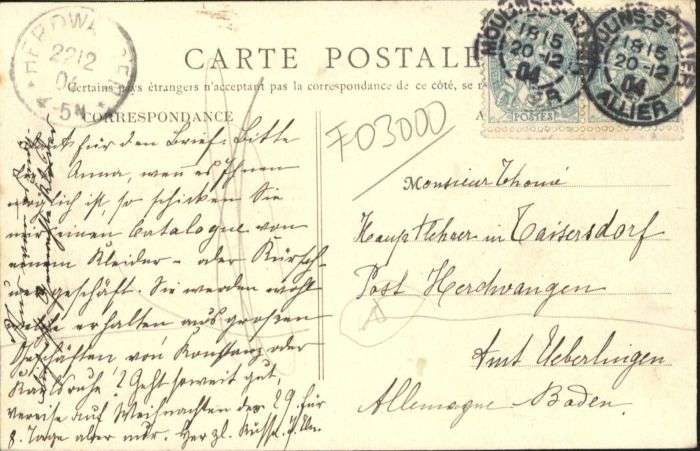 HERDWANGEN
22 12
04
5 N
CARTE POSTALE
MOULINS-S-ALLIER
18 15
20-12
04
ALLIER
MOULINS-S-ALLIER
18 15
20-12
04
ALLIER
POSTES
Certains pays étrangers n'acceptant pas la correspondance de ce côté, se
CORRESPONDANCE
A
F03000
für den Brief. Bitte
Anna, wen es Ihnen
möglich ist, so schicken Sie
mir einen Catalogue von
einem Kleider- oder Kürsch-
nergeschäft. Sie werden wohl
solche erhalten aus großen
Geschäften von Konstanz oder
Karlsruhe! Geht soweit gut,
vereise auf Weihnachten den 29. für
8. Tage aber nur. Herzl.
Monsieur Thomé
Hauptlehrer in Taisersdorf
Post Herdwangen
Amt Ueberlingen
Allemagne Baden.
A